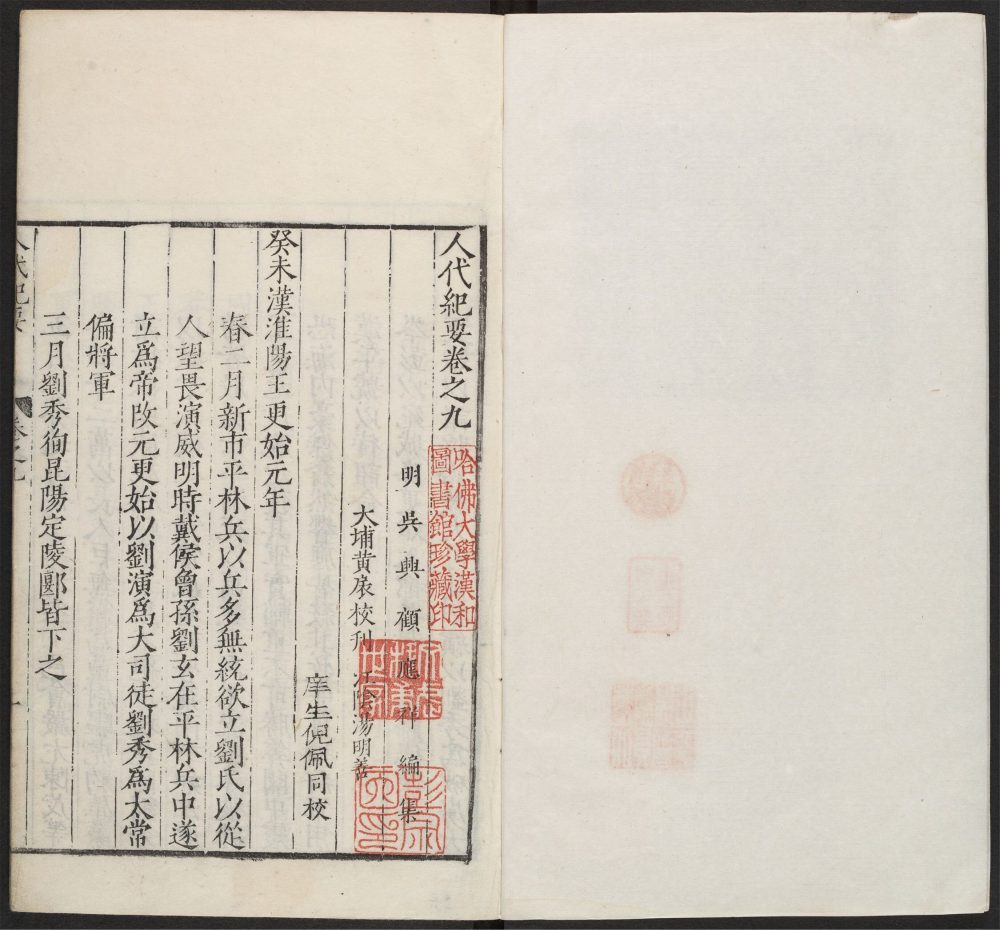 人代紀要卷之九
哈佛大學漢和
圖書館珍藏印
明吳興顧應祥編集
大埔黃扆校刊
湯明善
庠生倪佩同校
癸未漢淮陽王更始元年
春二月新市平林兵以兵多無統欲立劉氏以從
人望畏演威明時戴侯曾孫劉玄在平林兵中遂
立爲帝改元更始以劉演爲大司徒劉秀爲太常
偏將軍
三月劉秀徇昆陽定陵郾皆下之
人代紀要
卷之九